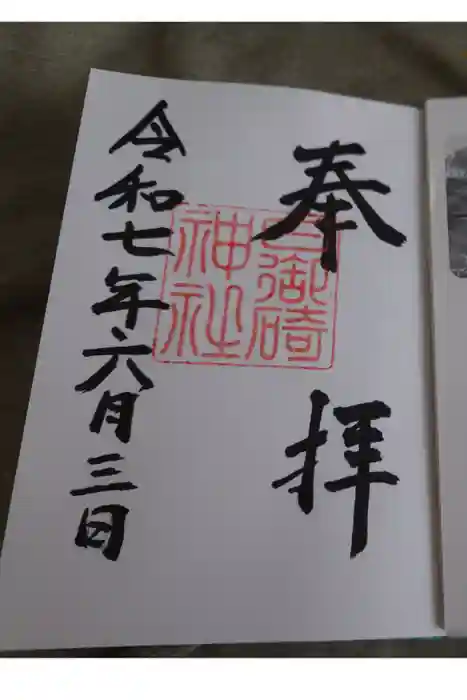 奉拝
日御碕
神社
令和七年六月三日